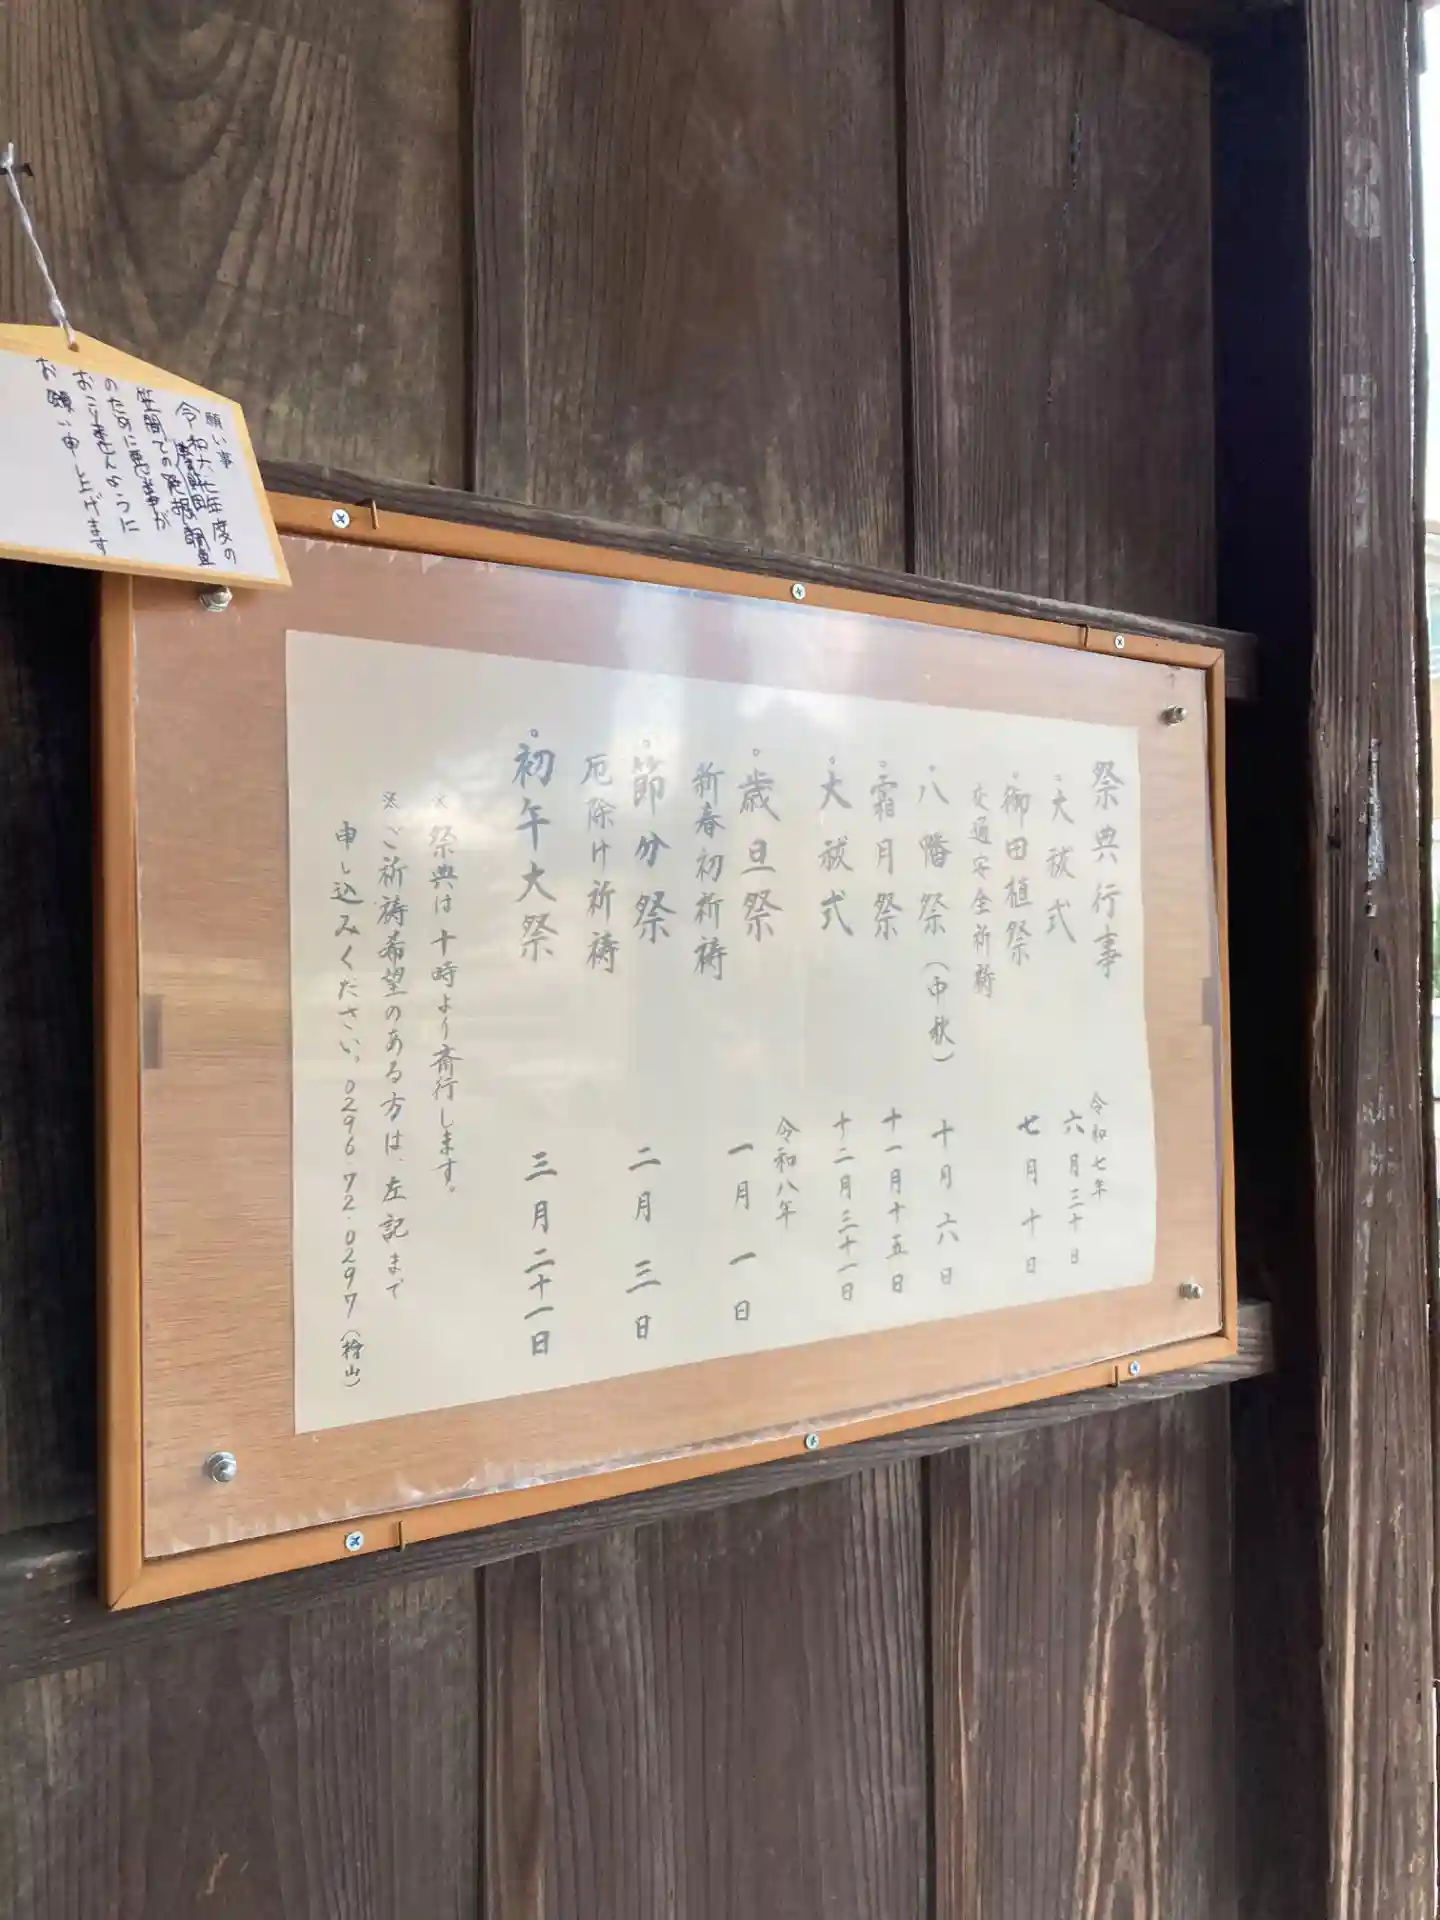 祭典行事
令和七年
。大祓式 六月三十日
。御田植祭 七月十日
交通安全祈祷
。八幡祭(中秋) 十月六日
。霜月祭 十一月十五日
。大祓式 十二月三十一日
令和八年
。歳旦祭 一月一日
新春初祈祷
。節分祭 二月三日
厄除け祈祷
。初午大祭 三月二十一日
※祭典は十時より斎行します。
※ご祈祷希望のある方は、左記まで
申し込みください。0296.72.0297(桧山)
願い事
令和六、七年度の
笠間での発掘調査
のために悪い事が
おこりませんように
お願い申し上げます